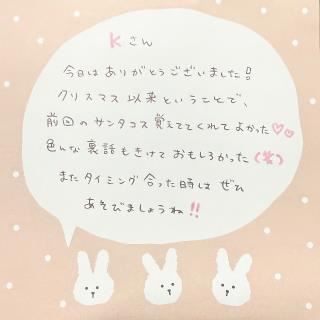 Kさん
今日はありがとうございました!
クリスマス以来ということで、
前回のサンタコス覚えててくれてよかった♡♡
色んな裏話もきけておもしろかった(笑)
またタイミング合った時はぜひ
あそびましょうね!!